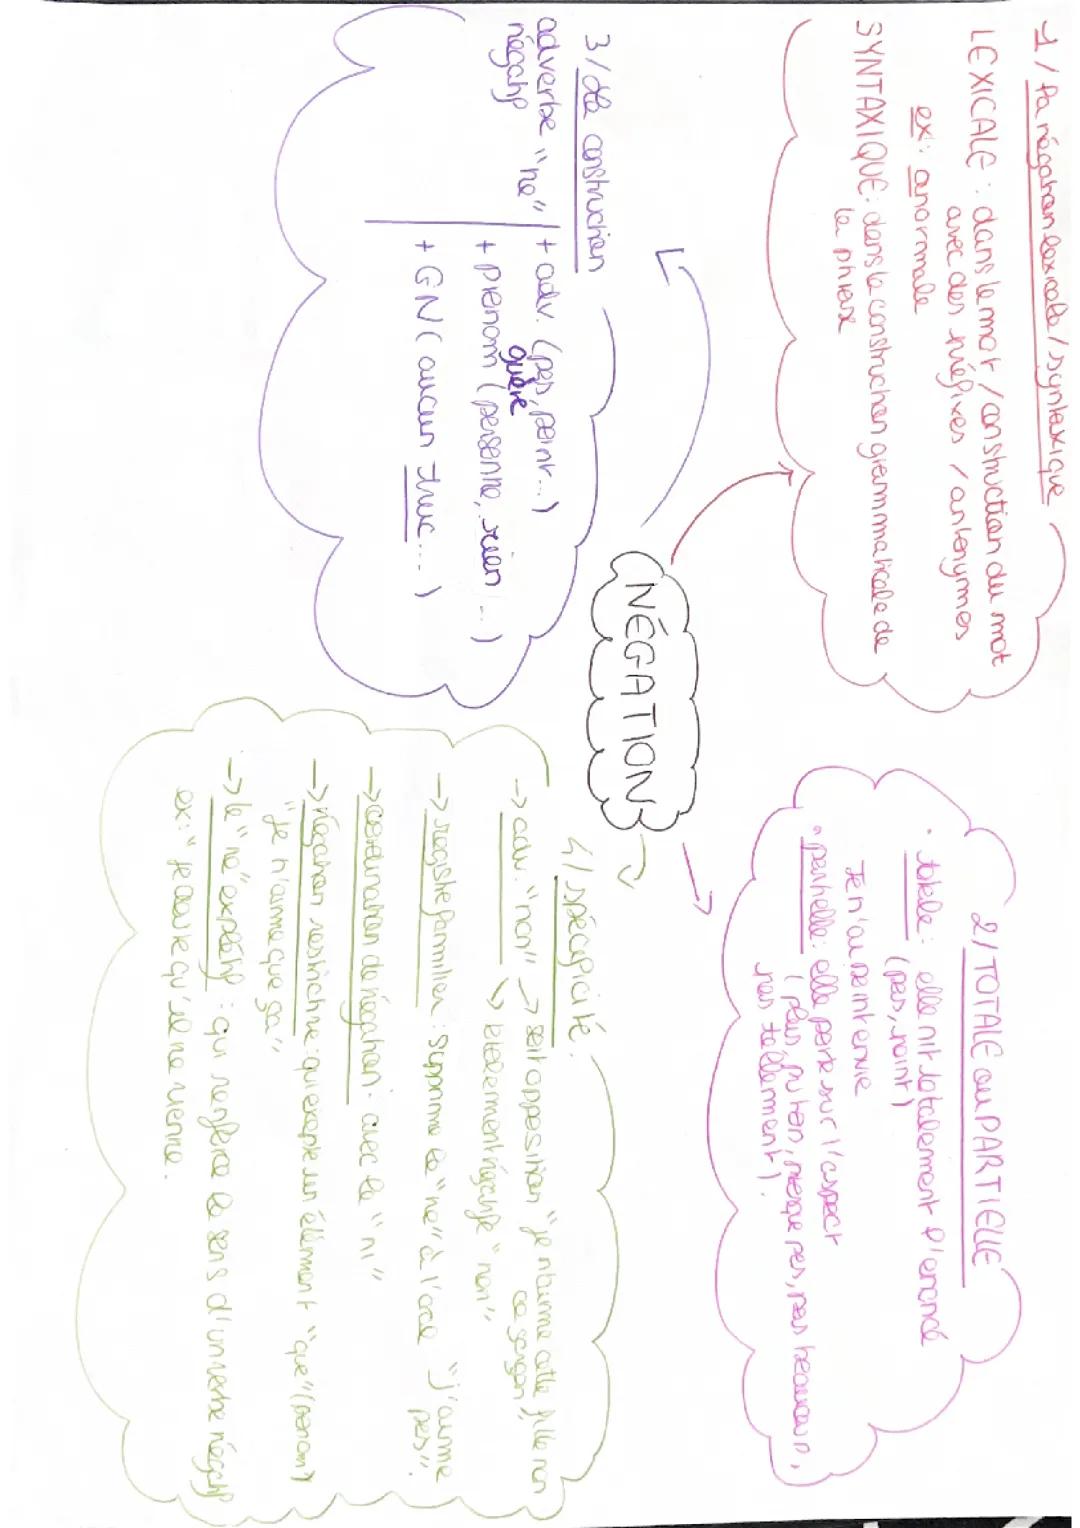 NÉGATION
1/ la négation lexicale / syntaxique
LEXICALE : dans le mot / construction du mot
avec des préfixes / antonymes
ex : anormale
SYNTAXIQUE : dans la construction grammaticale de
la phrase
2/ TOTALE ou PARTIELLE
totale : elle nit totalement l'énoncé
(pas, point)
Je n'ai point envie
partielle : elle porte sur l'aspect
(plus, rien, presque pas, pas beaucoup,
pas tellement).
3/ la construction
adverbe "ne" + adv. (pas, point...)
négatif guère
+ pronom (personne, rien ...)
+ GN (aucun truc ...)
4/ spécificité :
-> adv. "non" -> soit opposition "je n'aime cette fille non
ce garçon"
-> totalement négatif "non"
-> registre familier : supprime le "ne" à l'oral "j'aime
pas".
-> coordination de négation : avec le "ni"
-> négation restrictive : qui excepte un élément "que" (pronom)
"je n'aime que ça"
-> le "ne" explétif : qui renforce le sens d'un verbe négatif
ex : "je doute qu'il ne vienne.